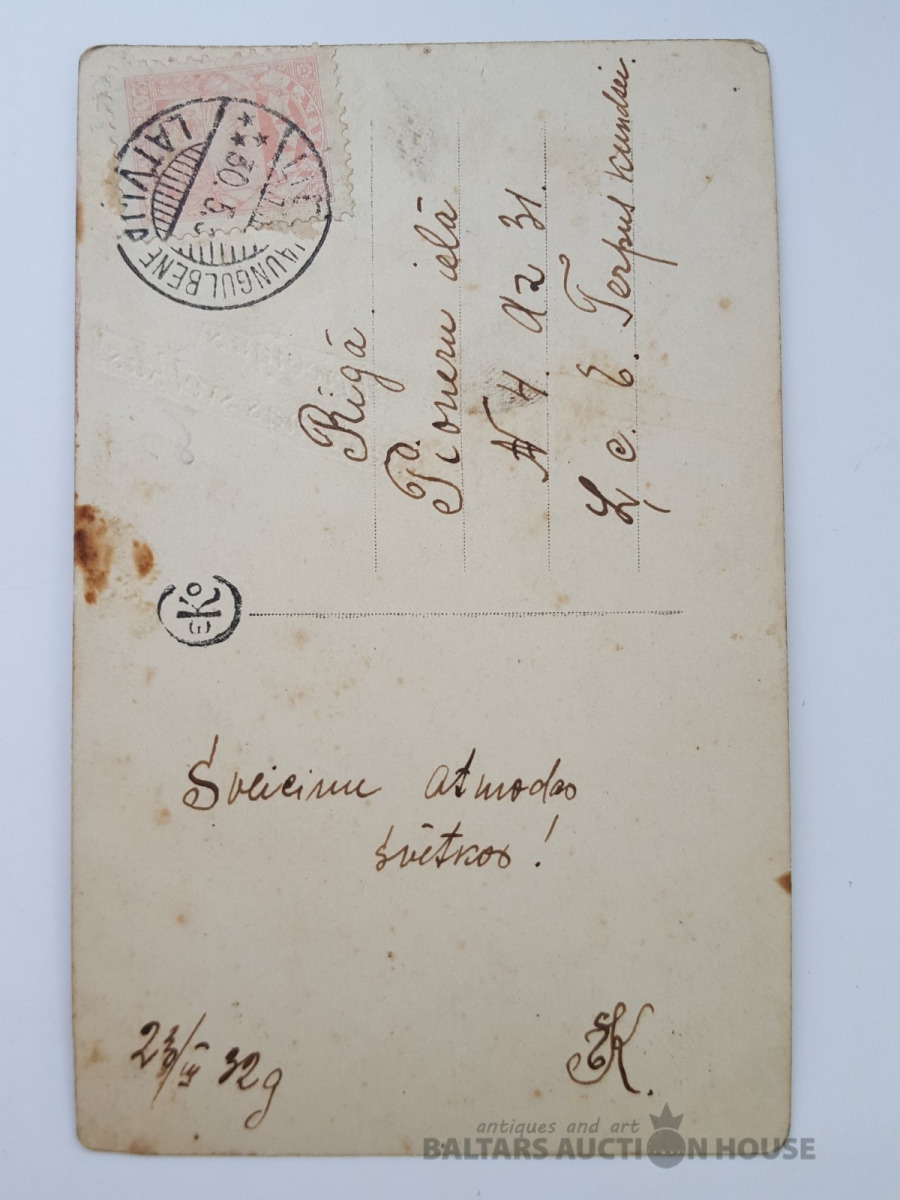 LATVIJA
30.5.3
JAUNGULBENE
Rīgā
Pioneru ielā
N 4 dz 31.
L. c. E. Terpus kundzei.
EKo
Sveicinu atmodas
svētkos!
32g
EK.
antiques and art
BALTARS AUCTION HOUSE